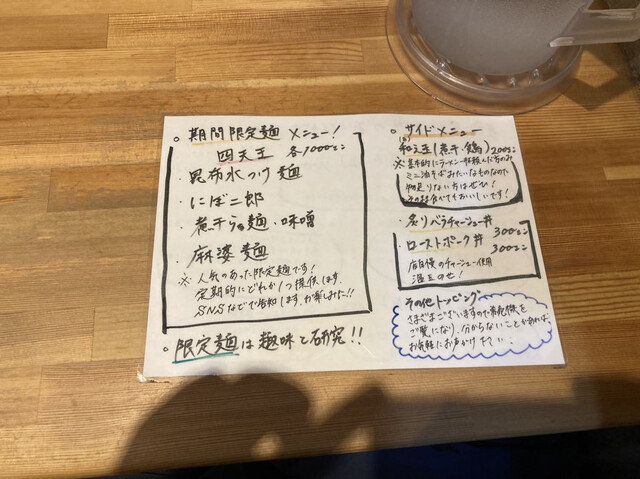 。期間限定麺 メニュー!
四天王 各1000えん
・昆布水つけ麺
・にぼ二郎
・煮干らぁ麺・味噌
・麻婆麺
※人気のあった限定麺です!
定期的にどれか1つ提供します。
SNSなどで告知します。お楽しみに!!
。限定麺は趣味と研究!!
。サイドメニュー
和え玉(煮干・鶏) 200えん
※基本的にラーメン一杯頼んだ方のみ
ミニ油そばみたいなものなので
物足りない方はぜひ!
そのまま食べてもおいしいです!
・炙りバラチャーシュー丼 300えん
・ローストポーク丼 300えん
店自慢のチャーシュー使用
温玉のせ!
その他トッピング
さまざまございますので券売機を
ご覧になり、分からないことがあれば
お気軽にお声がけ下さい。